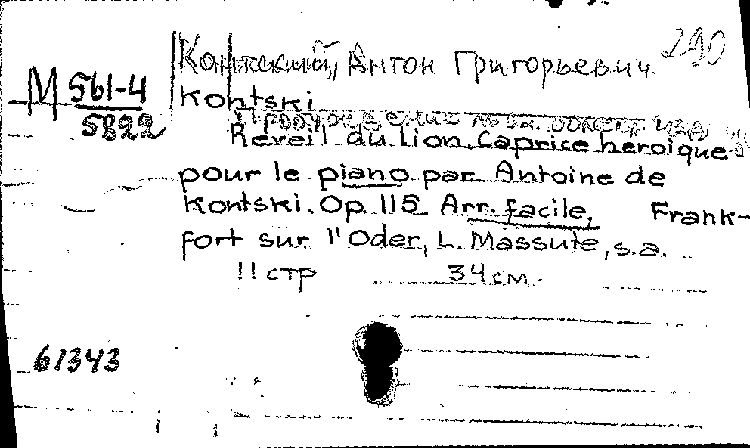 290
Контский, Антон Григорьевич
М 561-4
5822
Kontski
Reveil du lion. Caprice heroique
pour le piano par Antoine de
Kontski. Op. 115 Arr. facile, Frank-
fort sur l'Oder, L. Massute, s.a.
11 стр 34 см.
61343